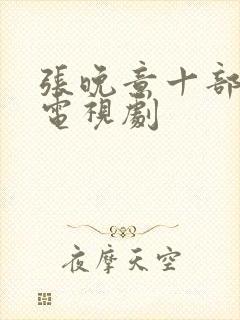 張晚意十部
電視劇
夜摩天空